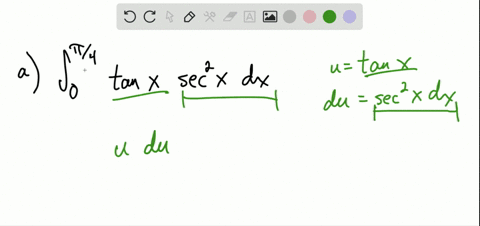 a) ∫₀^(π/4) tan x sec²x dx
u du
u = tan x
du = sec²x dx